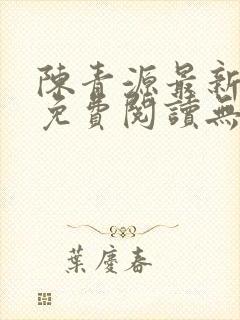 陳青源最新
免費閱讀無
葉慶春